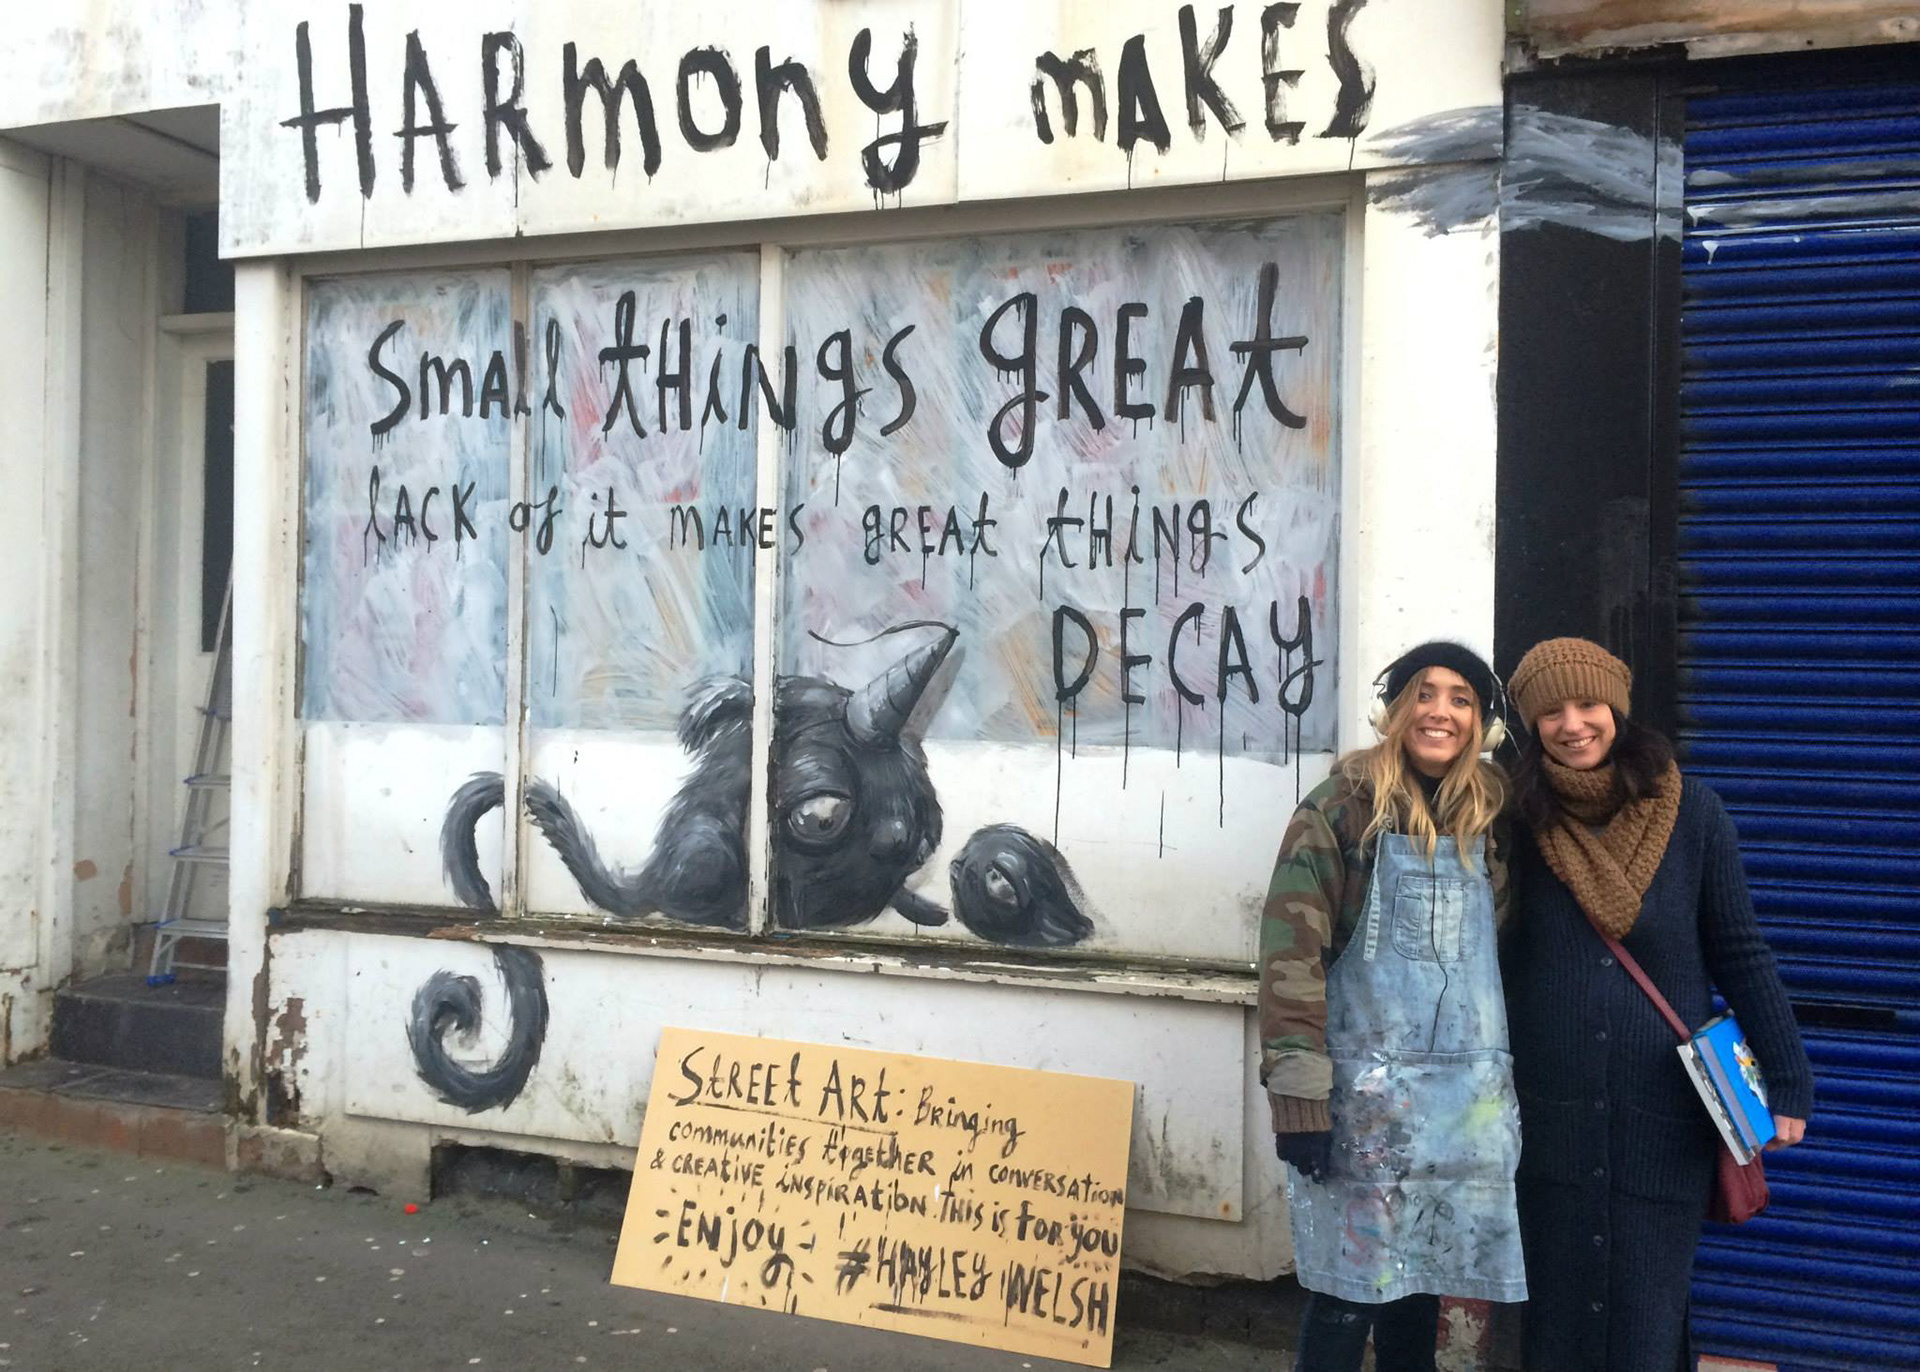 HARMONY MAKES
SMALL THINGS GREAT
LACK OF IT MAKES GREAT THINGS
DECAY
STREET ART: BRINGING
COMMUNITIES TOGETHER IN CONVERSATION
& CREATIVE INSPIRATION. THIS IS FOR YOU
ENJOY #HAYLEY WELSH